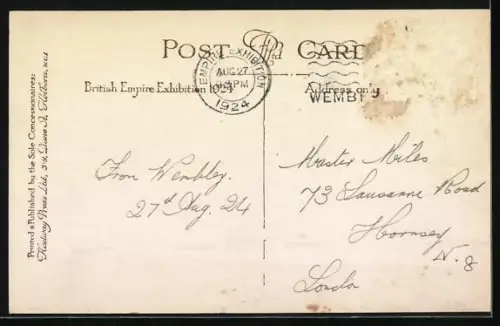 POST CARD
EMPIRE EXHIBITION
AUG 27
PM
1924
WEMBL
British Empire Exhibition 1924
Address only
Printed & Published by the Sole Concessionaires:
Fleetway Press Ltd, 3-9, Dane St, Holborn, WC1
From Wembley.
27th Aug. 24
Master Miles
73 Lausanne Road
Hornsey
N. 8
London